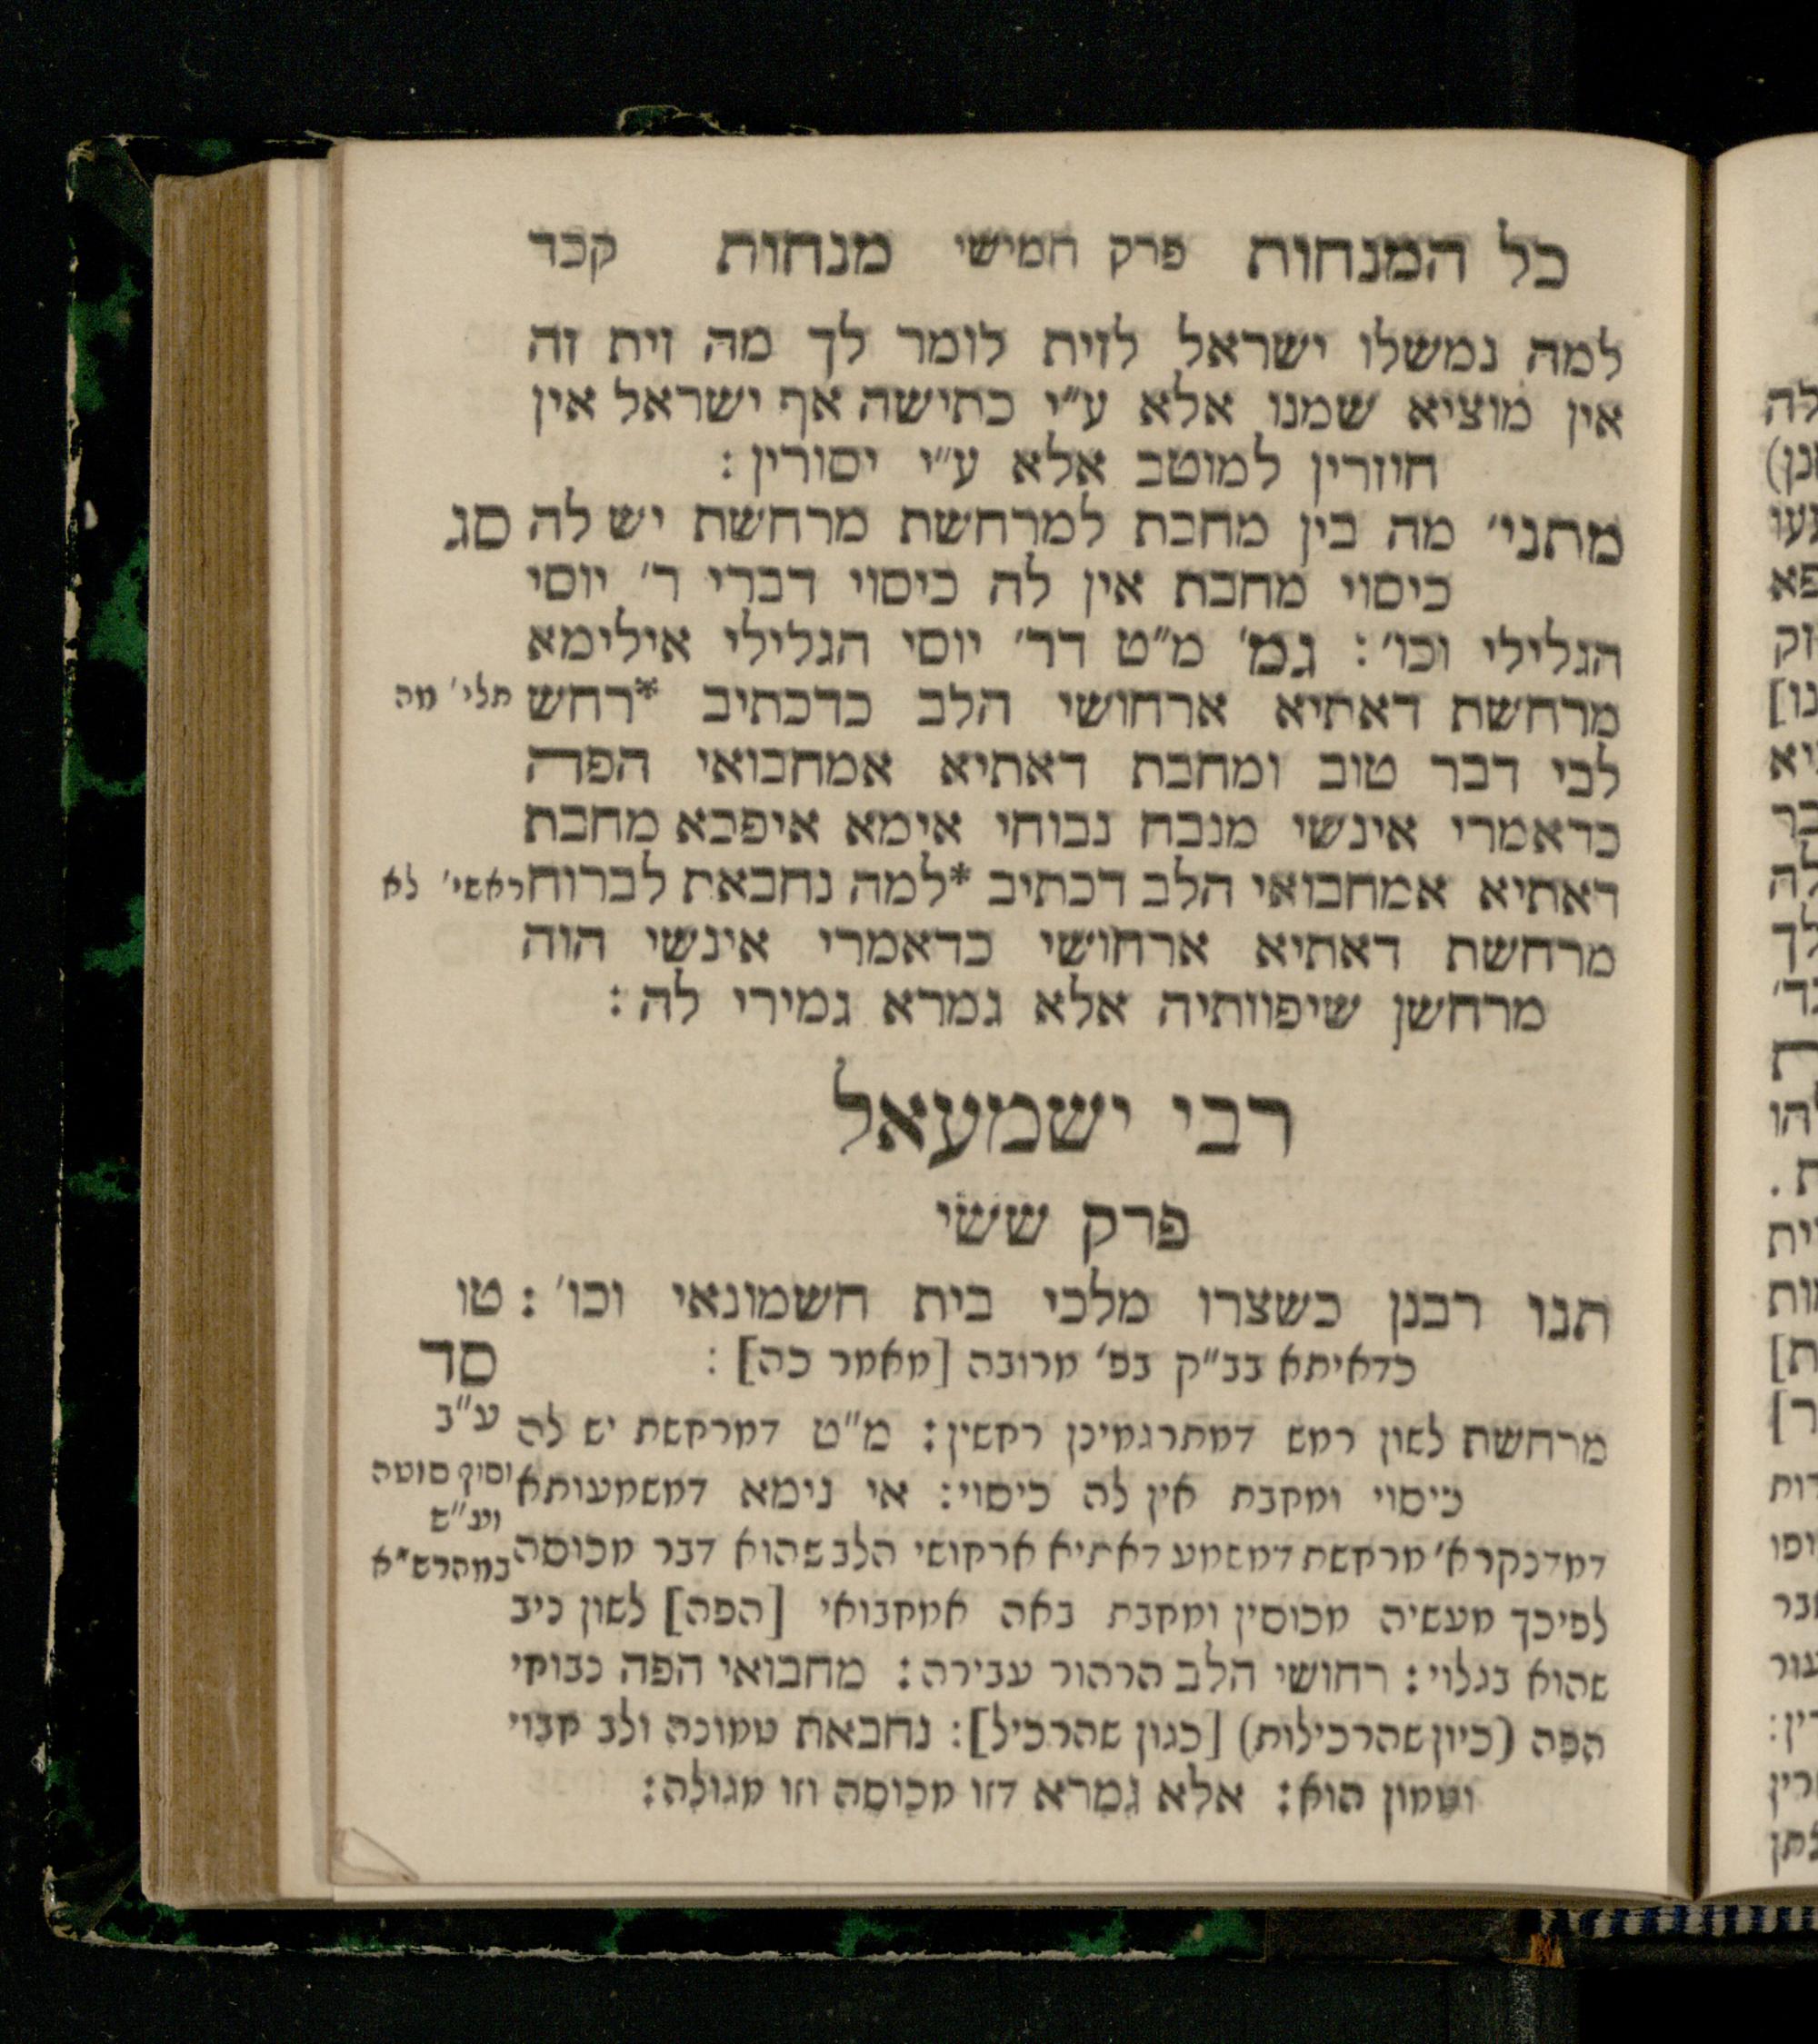 כל המנחות פרק חמישי מנחות קכד
למה נמשלו ישראל לזית לומר לך מה זית זה
אין מוציא שמנו אלא ע״י כתישה אף ישראל אין
חוזרין למוטב אלא ע״י יסורין :
מתני׳ מה בין מחבת למרחשת מרחשת יש לה סג
כיסוי מחבת אין לה כיסוי דברי ר׳ יוסי
הגלילי וכו׳ : גמ׳ מ״ט דר׳ יוסי הגלילי אילימא
מרחשת דאתיא ארחושי הלב כדכתיב *רחש תלי׳ מה
לבי דבר טוב ומחבת דאתיא אמחבואי הפה
כדאמרי אינשי מנבח נבוחי אימא איפכא מחבת
דאתיא אמחבואי הלב דכתיב *למה נחבאת לברוח ראשי׳ לא
מרחשת דאתיא ארחושי כדאמרי אינשי הוה
מרחשן שיפוותיה אלא גמרא גמירי לה :
רבי ישמעאל
פרק ששי
תנו רבנן כשצרו מלכי בית חשמונאי וכו׳ : טו
כדאיתא בב״ק בפ׳ מרובה [מאמר כה] : סד
ע״ב
מרחשת לשון רחש דמתרגמינן רחשין : מ״ט דמרחשת יש לה
וסוף סוטה
כיסוי ומחבת אין לה כיסוי : אי נימא דמשמעותא
ועי״ש
דמדנקרא׳ מרחשת דמשמע דאתיא ארחושי הלב שהוא דבר מכוסה במהרש״א
לפיכך מעשיה מכוסין ומחבת באה אמחבואי [הפה] לשון ניב
שהוא בגלוי : רחושי הלב הרהור עבירה : מחבואי הפה נבוחי
הפה (כיון שהרכילות) [כגון שהרכיל] : נחבאת טמונה ולב חבוי
וטמון הוא : אלא גמרא דזו מכוסה וזו מגולה :